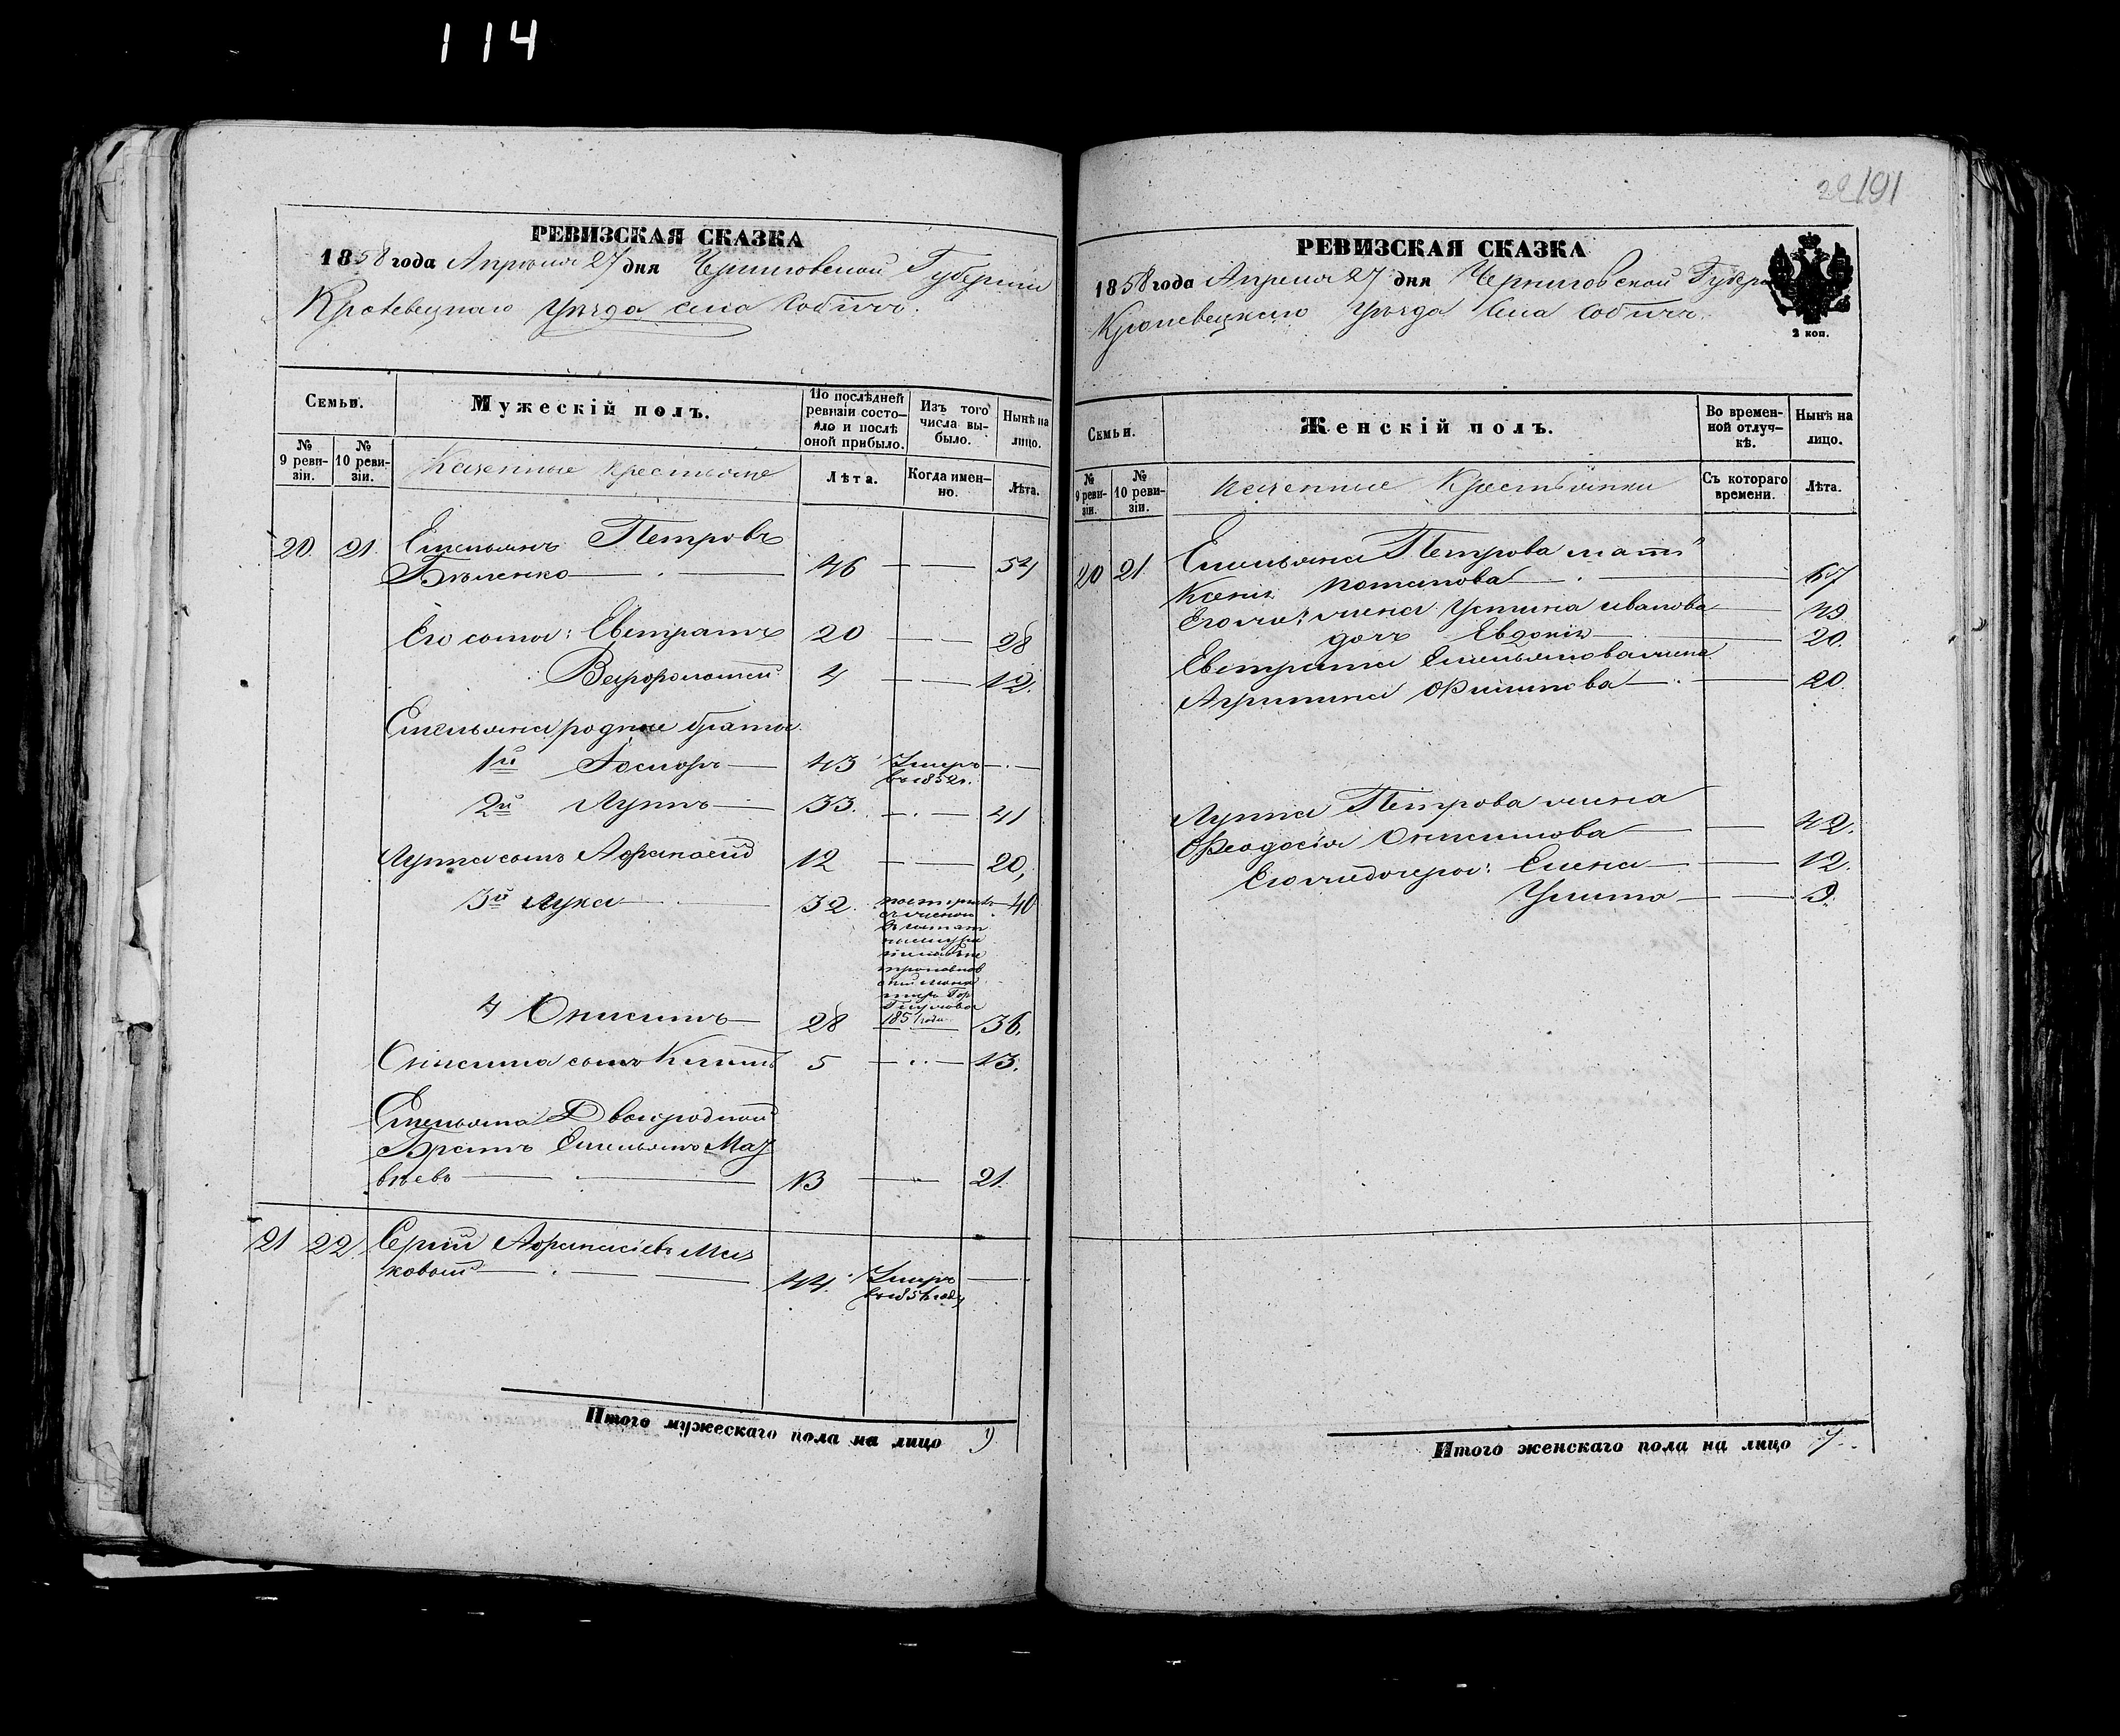 114
РЕВИЗСКАЯ СКАЗКА
1858 года Апреля 27 дня Черниговской Губернии
Кролевецкаго Уѣзда села Собичъ.
Семьи.
Мужескій полъ.
По послѣдней ревизіи состояло и послѣ оной прибыло.
Изъ того числа выбыло.
Нынѣ на лицо.
№ 9 ревизіи.
№ 10 ревизіи.
Казенные крестьяне
Лѣта.
Когда именно.
Лѣта.
20. 21. Емельянъ Петровъ
Бѣленко 46 54
Его сыны: Евстратъ 20 28
Варфоломей 4 12.
Емельяна родные братья
1й 43 Умеръ
въ 1852 г.
2й Луппъ 33. 41
Луппа сынъ Афанасій 12 20,
3й Лука 32 40
1851 года
4 Онисимъ 28 36.
Онисима сынъ 5 13.
Емельяна Двоюродный
Братъ Емельянъ Мат
вѣевъ 13 21.
21 22 Сергій Афанасіевъ
44. Умеръ
Итого мужескаго пола на лицо 9
191
РЕВИЗСКАЯ СКАЗКА
1858 года Апреля 27 дня Черниговской
Кролевецкаго Уѣзда села Собичъ.
2 коп.
Семьи.
Женскій полъ.
Во временной отлучкѣ.
Нынѣ на лицо.
№ 9 ревизіи.
№ 10 ревизіи.
Казенные Крестьянки
Съ котораго времени.
Лѣта.
20 21 Емельяна Петрова мать
Ксенія Потапова 67
Его жена Устина Иванова 49
дочь Евдокія 20.
Евстрата Емельянова жена
Агрипина Филипова 20.
Луппа Петрова жена
Феодосія Онисимова 42.
Елена 12.
Улита 9.
Итого женскаго пола на лицо 7